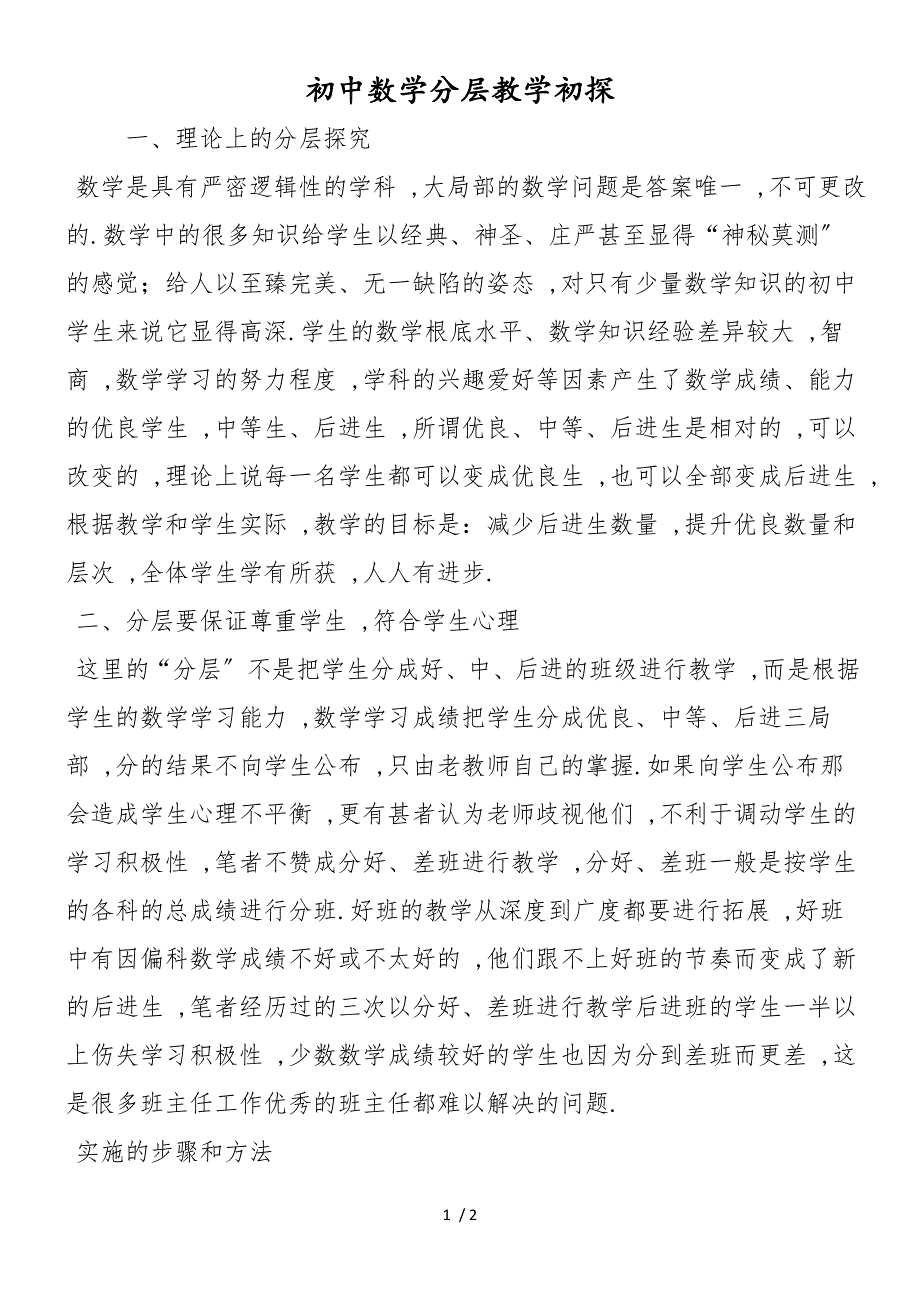 初中数学分层教学初探
一、理论上的分层探究
数学是具有严密逻辑性的学科 ,大局部的数学问题是答案唯一 ,不可更改
的.数学中的很多知识给学生以经典、神圣、庄严甚至显得“神秘莫测〞
的感觉；给人以至臻完美、无一缺陷的姿态 ,对只有少量数学知识的初中
学生来说它显得高深.学生的数学根底水平、数学知识经验差异较大 ,智
商 ,数学学习的努力程度 ,学科的兴趣爱好等因素产生了数学成绩、能力
的优良学生 ,中等生、后进生 ,所谓优良、中等、后进生是相对的 ,可以
改变的 ,理论上说每一名学生都可以变成优良生 ,也可以全部变成后进生 ,
根据教学和学生实际 ,教学的目标是：减少后进生数量 ,提升优良数量和
层次 ,全体学生学有所获 ,人人有进步.
二、分层要保证尊重学生 ,符合学生心理
这里的“分层〞不是把学生分成好、中、后进的班级进行教学 ,而是根据
学生的数学学习能力 ,数学学习成绩把学生分成优良、中等、后进三局
部 ,分的结果不向学生公布 ,只由老教师自己的掌握.如果向学生公布那
会造成学生心理不平衡 ,更有甚者认为老师歧视他们 ,不利于调动学生的
学习积极性 ,笔者不赞成分好、差班进行教学 ,分好、差班一般是按学生
的各科的总成绩进行分班.好班的教学从深度到广度都要进行拓展 ,好班
中有因偏科数学成绩不好或不太好的 ,他们跟不上好班的节奏而变成了新
的后进生 ,笔者经历过的三次以分好、差班进行教学后进班的学生一半以
上伤失学习积极性 ,少数数学成绩较好的学生也因为分到差班而更差 ,这
是很多班主任工作优秀的班主任都难以解决的问题.
实施的步骤和方法
1 / 2